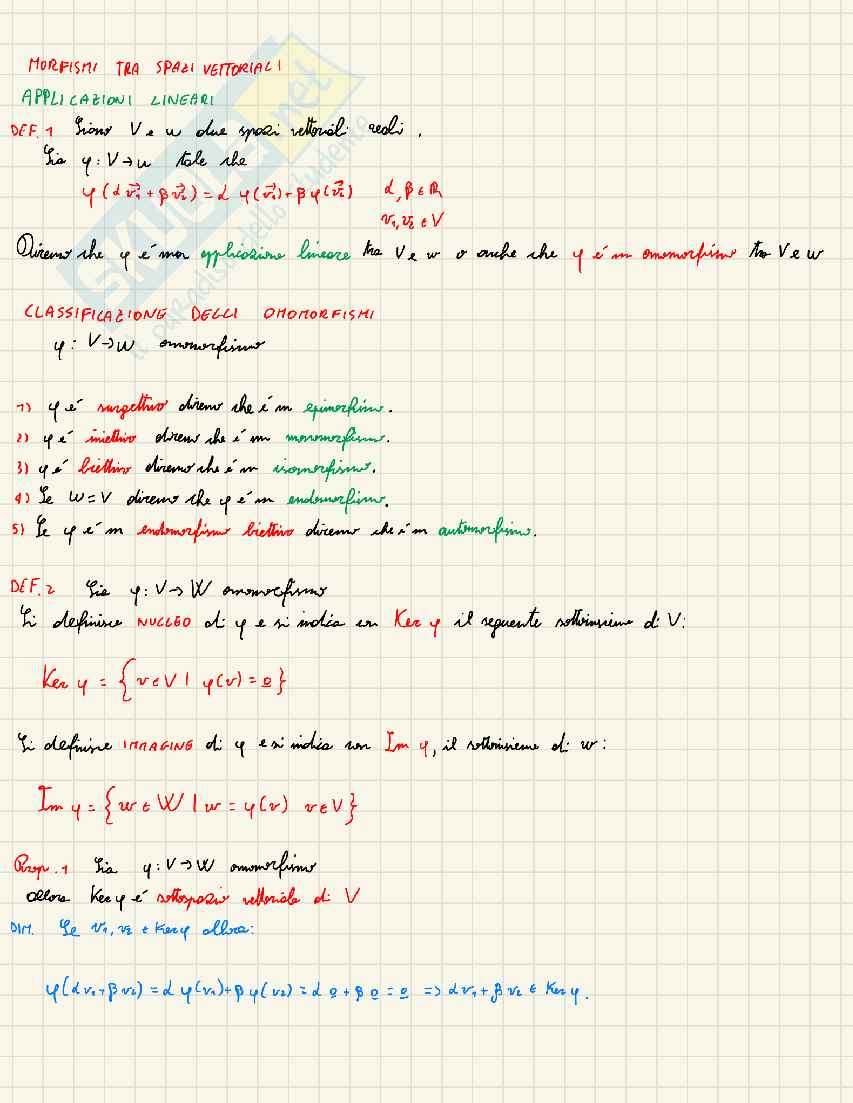 MORFISMI TRA SPAZI VETTORIALI
APPLICAZIONI LINEARI
DEF. 1 Siano V e W due spazi vettoriali reali.
Sia φ: V→W tale che
φ(α v⃗₁ + β v⃗₂) = α φ(v⃗₁) + β φ(v⃗₂) α, β ∈ ℝ
v₁, v₂ ∈ V
Diremo che φ é una applicazione lineare tra V e W o anche che φ é un omomorfismo tra V e W
CLASSIFICAZIONE DEGLI OMOMORFISMI
φ: V→W omomorfismo
1) φ é surgettivo diremo che é un epimorfismo.
2) φ é iniettivo diremo che é un monomorfismo.
3) φ é biettivo diremo che é un isomorfismo.
4) Se W = V diremo che φ é un endomorfismo.
5) Se φ é un endomorfismo biettivo diremo che é un automorfismo.
DEF. 2 Sia φ: V→W omomorfismo
Si definisce NUCLEO di φ e si indica con Ker φ il seguente sottoinsieme di V:
Ker φ = {v ∈ V | φ(v) = 0̲}
Si definisce IMMAGINE di φ e si indica con Im φ, il sottoinsieme di W:
Im φ = {w ∈ W | w = φ(v) v ∈ V}
Prop. 1 Sia φ: V→W omomorfismo
allora Ker φ é sottospazio vettoriale di V
DIM. Se v₁, v₂ ∈ Ker φ allora:
φ(α v₁ + β v₂) = α φ(v₁) + β φ(v₂) = α 0̲ + β 0̲ = 0̲ => α v₁ + β v₂ ∈ Ker φ.
SKUOLA.net
il paradiso dello studente